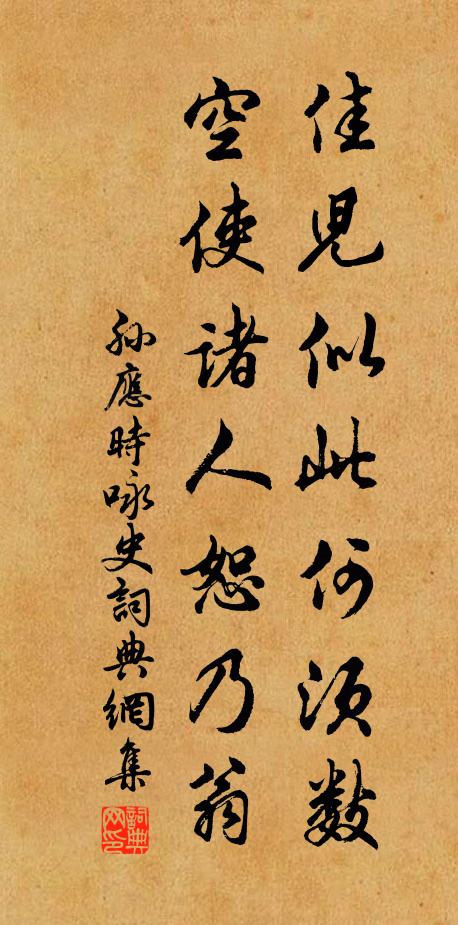 佳児似此何須數
空使諸人恕乃翁
孫應時咏史詞典網集
詞典网印